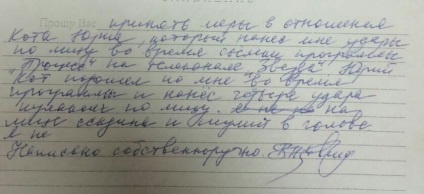 Прошу Вас принять меры в отношении
Кота Юрия, который нанес мне удары
по лицу во время съемки программы
"Процесс" на телеканале "Звезда" Юрий
Кот подошел ко мне во время
программы и нанес четыре удара
кулаком по лицу, на
лице ссадина и в голове
я не
Написано собственноручно